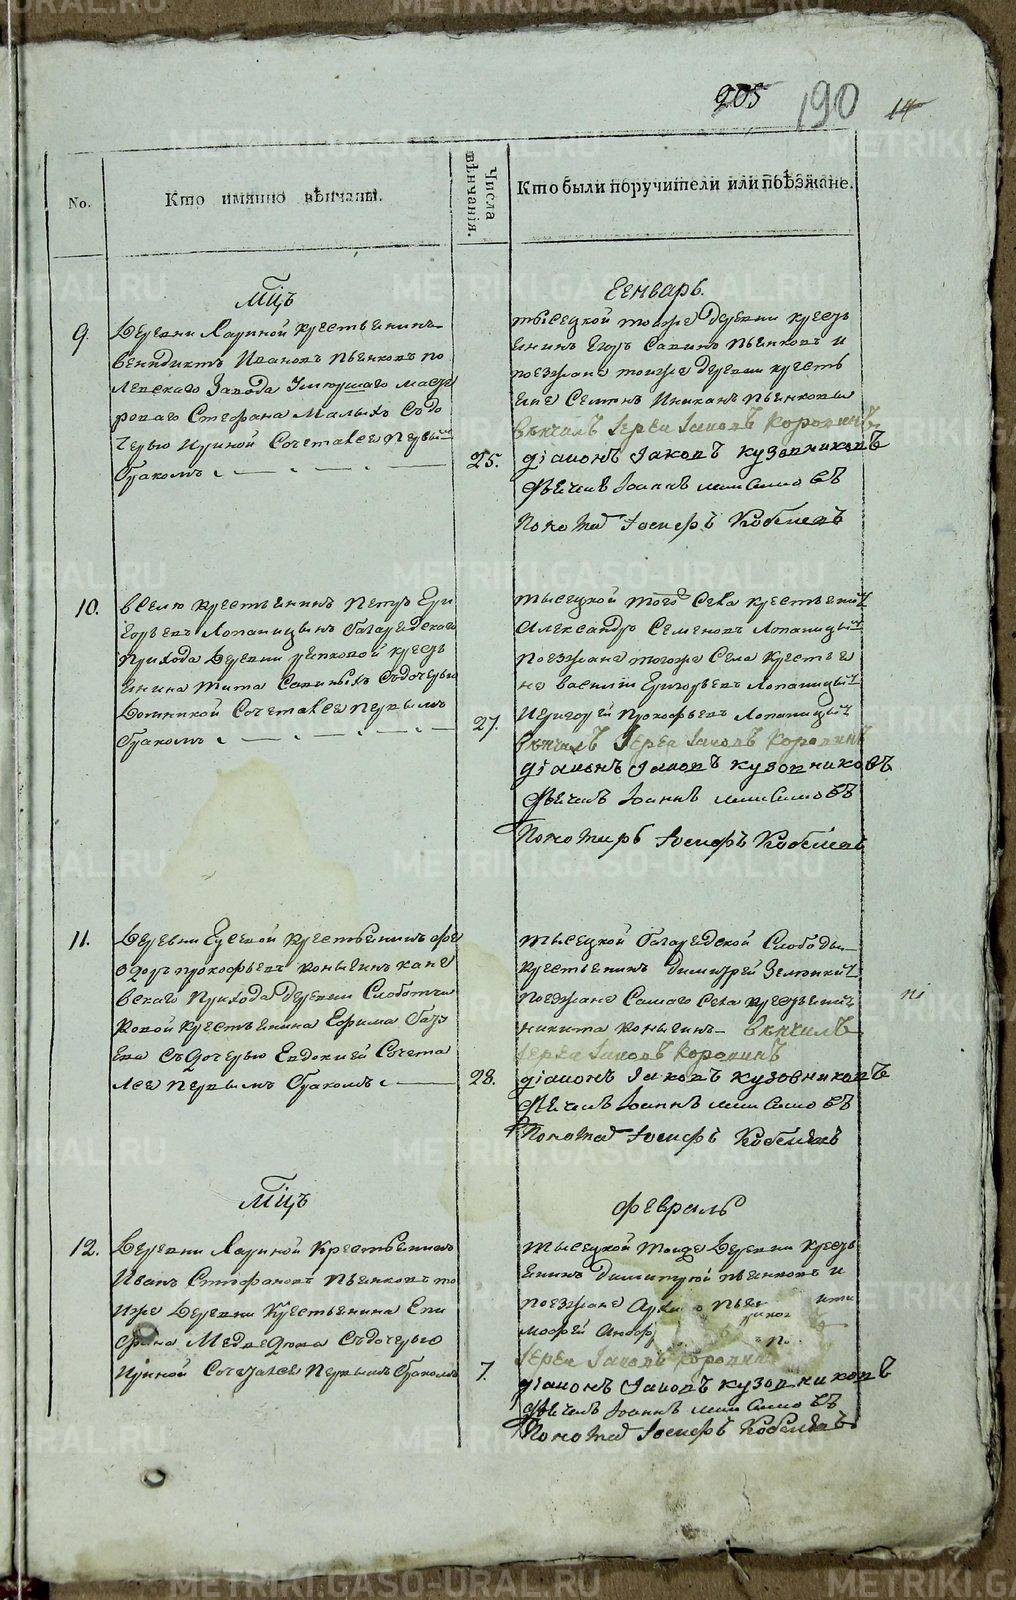 205 190 14
No.
Кто имянно вѣнчаны.
Числа вѣнчанія.
Кто были поручители или поѣзжане.
Мцъ
Генварь
9.
Деревни Лариной крестьянинъ
Венидиктъ Ивановъ Пьянковъ по
левскаго Завода Умершаго масте
роваго Стефана Малыхъ Съдо
черью Ириной Сочетался первымъ
бракомъ
25.
тысецкой тоъже Деревни кресть
янинъ Егоръ Савинъ Пьянковъ и
поезжане тоиже Деревни кресть
яне Семенъ Иниканъ Пьянковы
Вѣнчалъ Іерей Іаковъ Коровинъ
діаконъ Іаковъ Кузовниковъ
дьячекъ Іоаннъ
Пономарь Іосифъ Кобелевъ
10.
всело крестьянинъ Петръ Гри
горьевъ Лопатицынъ Багарядскаго
прихода Деревни репковой кресть
янина Тита Савиныхъ Съдочерью
Домникой Сочетался первымъ
бракомъ
27.
тысецкой того Села крестьянинъ
Александръ Семеновъ Лопатицынъ
Поезжане тогоже Села Крестья
не василіи Григорьевъ Лопатицынъ
Игригорей Прокофьевъ Лопатицынъ
вѣнчалъ Іерей Іаковъ Коровинъ
діаконъ Іаковъ Кузовниковъ
дьячекъ Іоаннъ
Пономарь Іосифъ Кобелевъ
11.
Деревни Гусевой крестьянинъ Фе
одоръ прокофьевъ Коныгинъ кане
вскаго Прихода Деревни Слоботчи
ковой крестьянина Ефима
Съдочерью Евдокией Сочета
лся первымъ бракомъ
28.
тысецкой Багарядской Слободы
крестьянинъ Димитрей
Поезжане Самаго Села крестьянинъ
никита коныгинъ Вѣнчалъ
Іерей Іаковъ Коровинъ
діаконъ Іаковъ Кузовниковъ
дьячекъ Іоаннъ
Пономарь Іосифъ Кобелевъ
Мцъ
Февраль
12.
Деревни Лариной Крестьянинъ
Иванъ Стефановъ Пьянковъ то
иже Деревни Крестьянина Спи
рина Медведева Съдочерью
Ириной Сочетался Первымъ бракомъ
7.
тысецкой Тоиже Деревни Кресть
янинъ Димитрей пьянковъ и
поезжане
Іерей Іаковъ Коровинъ
діаконъ Іаковъ Кузовниковъ
дьячекъ Іоаннъ
Пономарь Іосифъ Кобелевъ
METRIKI.GASO-URAL.RU